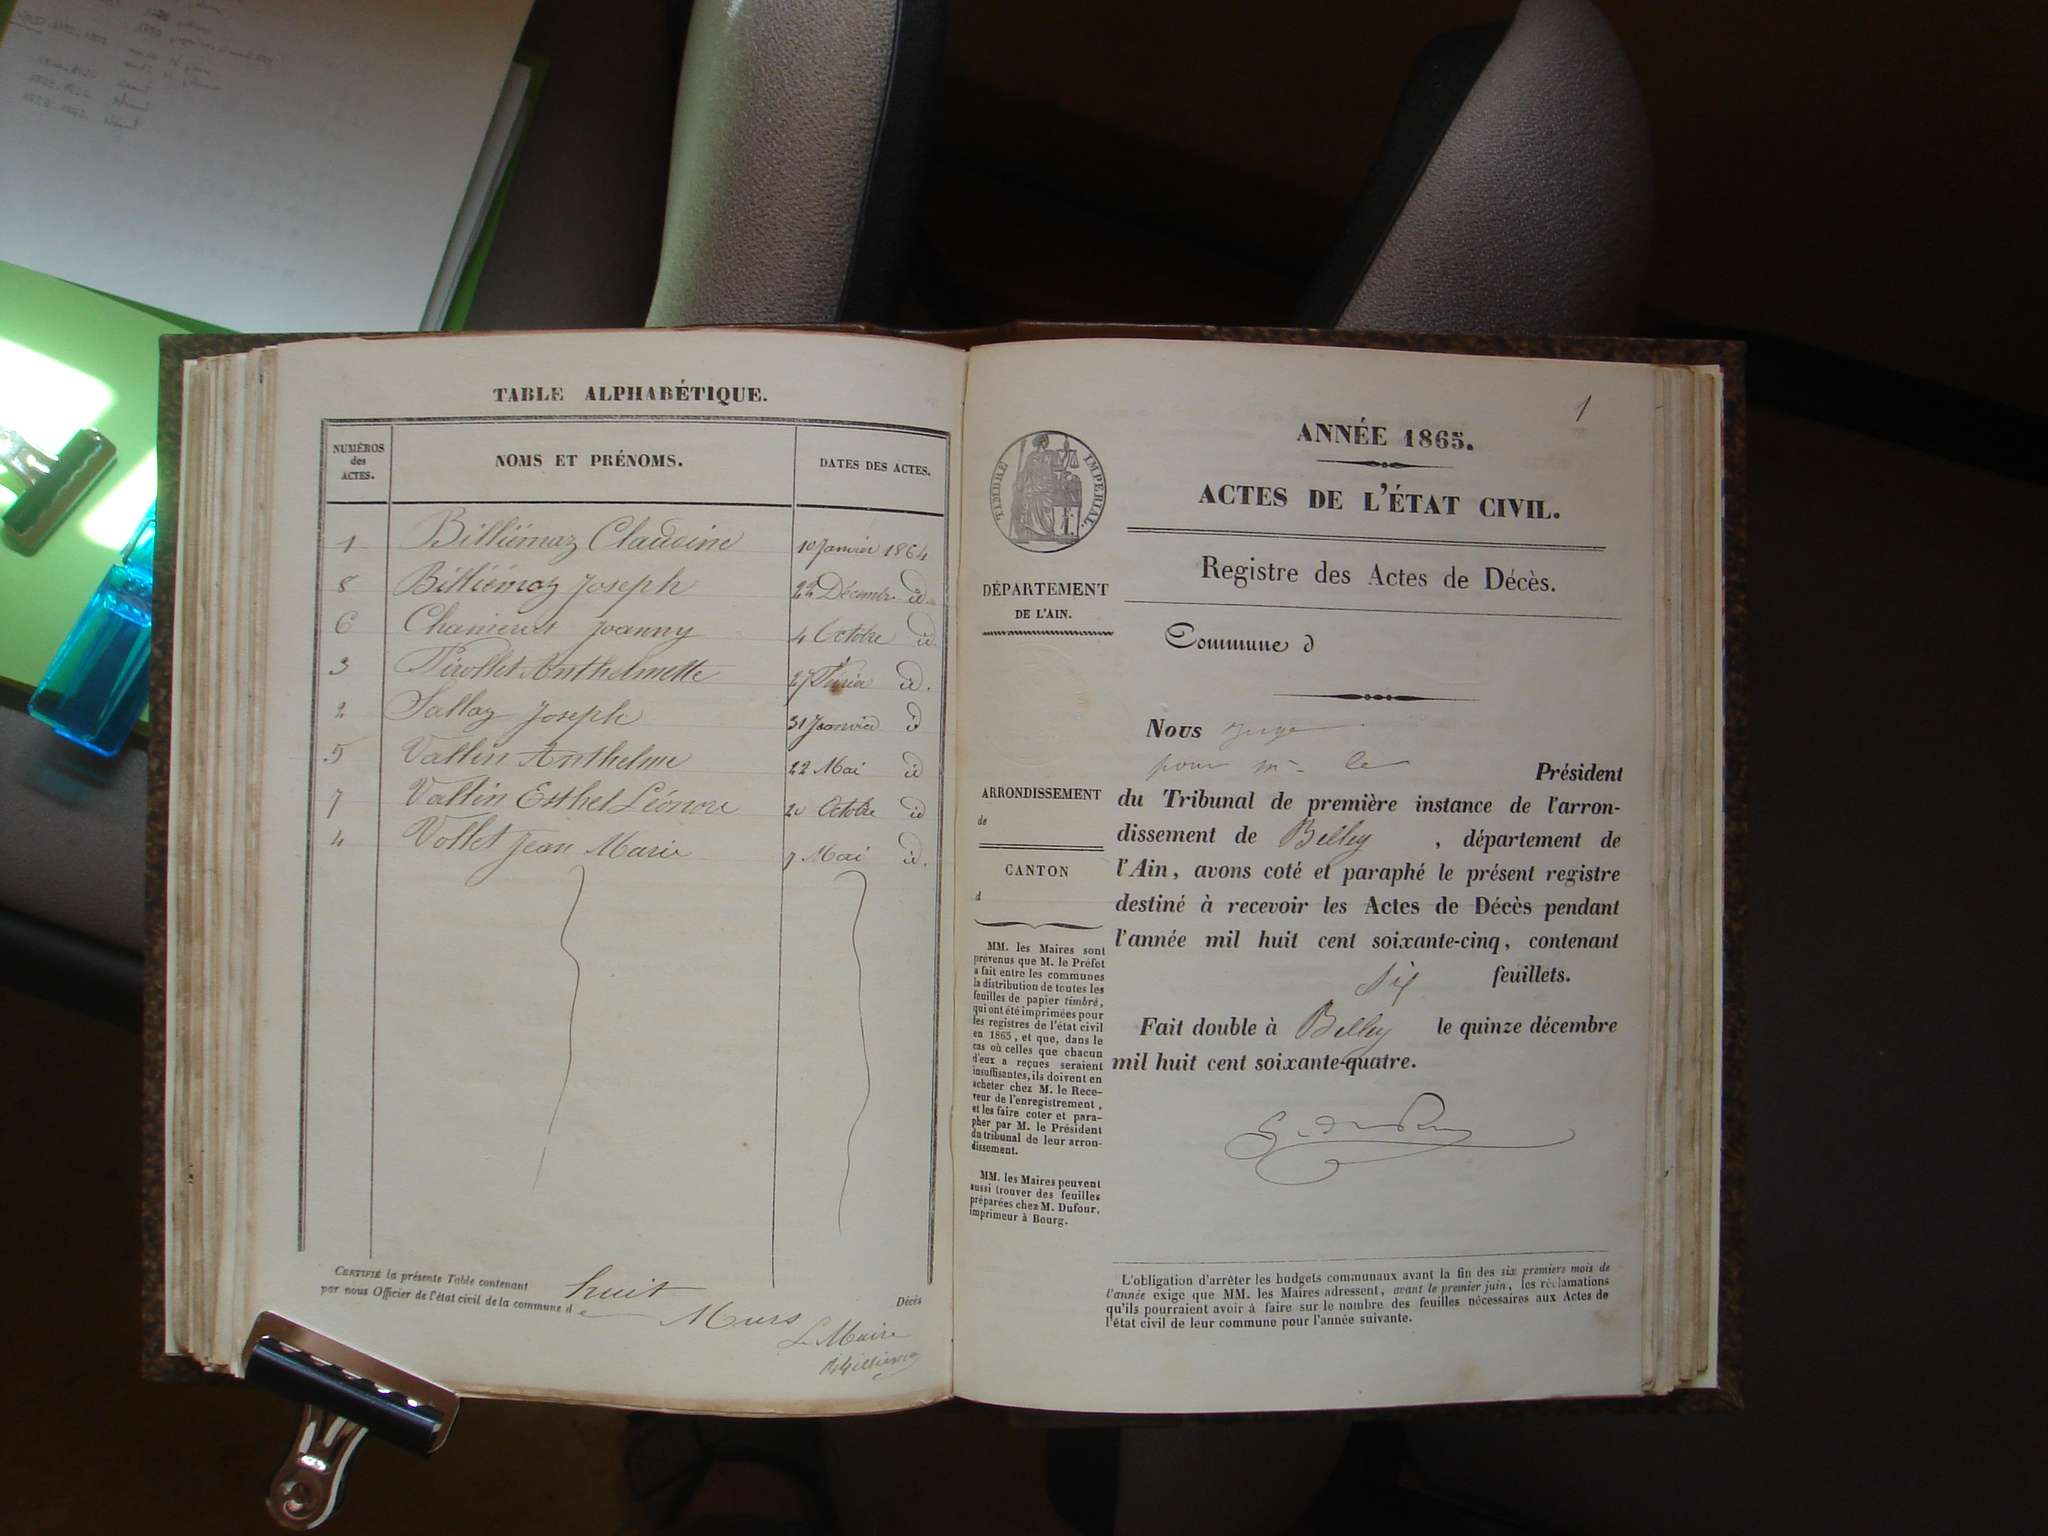 TABLE ALPHABÉTIQUE.
NUMÉROS des ACTES.
NOMS ET PRÉNOMS.
DATES DES ACTES.
1 Billiémaz Claudine 10 Janvier 1864
8 Billiémaz Joseph 22 Décembre id.
6 Joanny 4 Octobre id.
3 Pirollet Anthelmette 27 Février id.
2 Sallaz Joseph 31 Janvier id
5 Vallin Anthelme 22 Mai id
7 Vallin Esthel Léonore Octobre id
4 Vollet Jean Marie 7 Mai id.
CERTIFIÉ la présente Table contenant huit Décès
par nous Officier de l'état civil de la commune d e Murs
Le Maire
1
TIMBRE IMPÉRIAL.
ANNÉE 1865.
ACTES DE L'ÉTAT CIVIL.
Registre des Actes de Décès.
Commune d
DÉPARTEMENT
DE L'AIN.
ARRONDISSEMENT
de
CANTON
d
MM. les Maires sont
prévenus que M. le Préfet
a fait entre les communes
la distribution de toutes les
feuilles de papier timbré,
qui ont été imprimées pour
les registres de l'état civil
en 1865, et que, dans le
cas où celles que chacun
d'eux a reçues seraient
insuffisantes, ils doivent en
acheter chez M. le Rece-
veur de l'enregistrement,
et les faire coter et para-
pher par M. le Président
du tribunal de leur arron-
dissement.
MM. les Maires peuvent
aussi trouver des feuilles
préparées chez M. Dufour,
imprimeur à Bourg.
Nous juge
pour m. le Président
du Tribunal de première instance de l'arron-
dissement de Belley, département de
l'Ain, avons coté et paraphé le présent registre
destiné à recevoir les Actes de Décès pendant
l'année mil huit cent soixante-cinq, contenant
six feuillets.
Fait double à Belley le quinze décembre
mil huit cent soixante-quatre.
L'obligation d'arrêter les budgets communaux avant la fin des six premiers mois de
l'année exige que MM. les Maires adressent, avant le premier juin, les réclamations
qu'ils pourraient avoir à faire sur le nombre des feuilles nécessaires aux Actes de
l'état civil de leur commune pour l'année suivante.